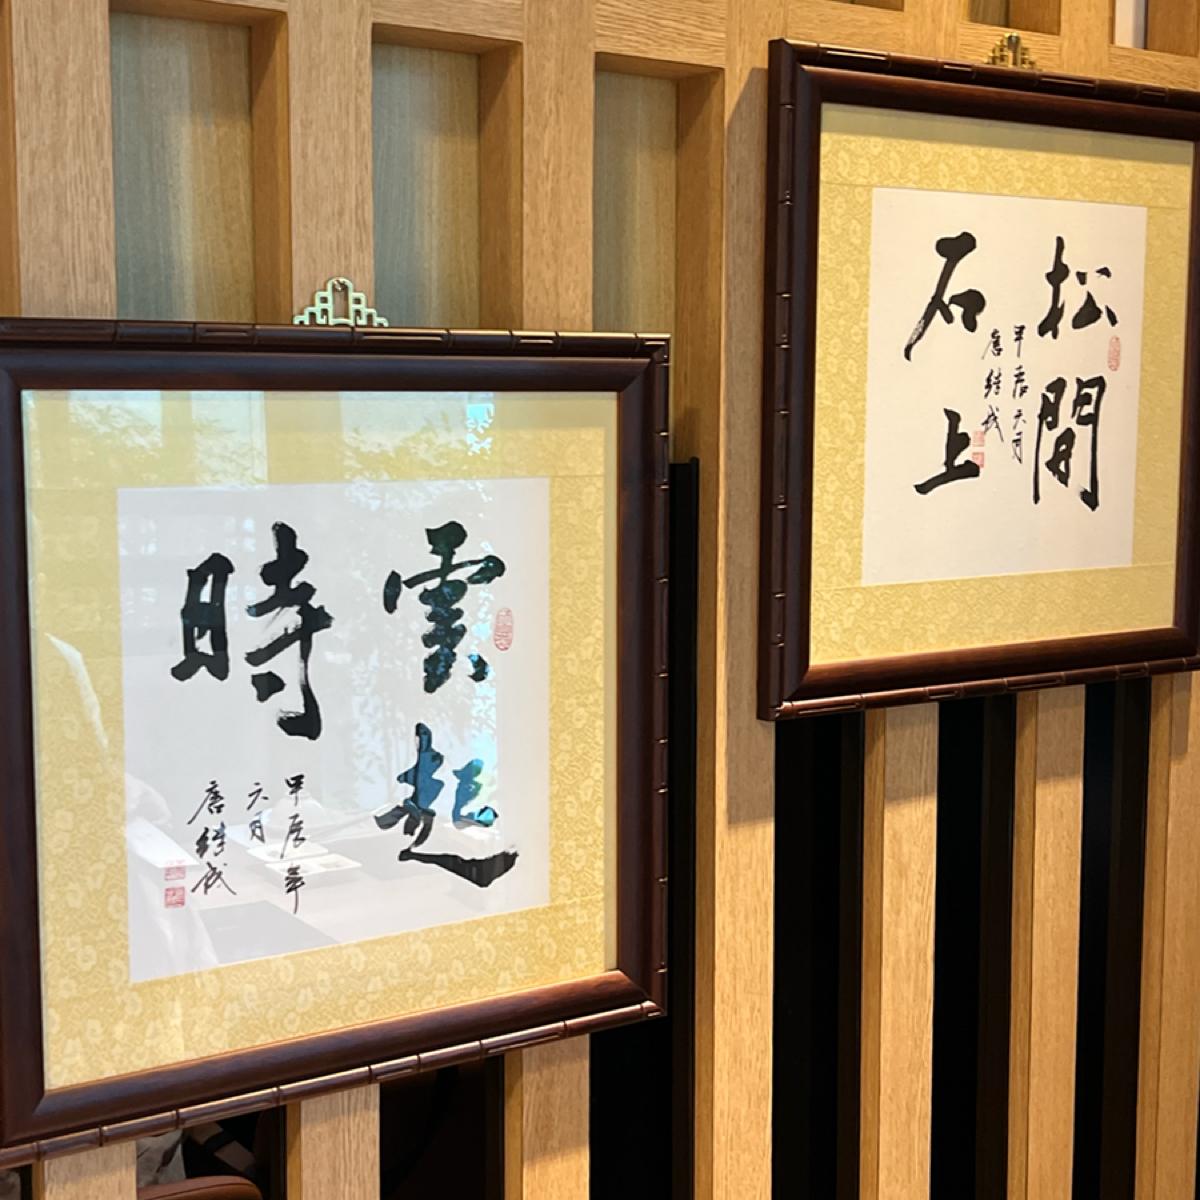 松間
石上
甲辰六月
唐继成
雲起
時
甲辰年
六月
唐继成